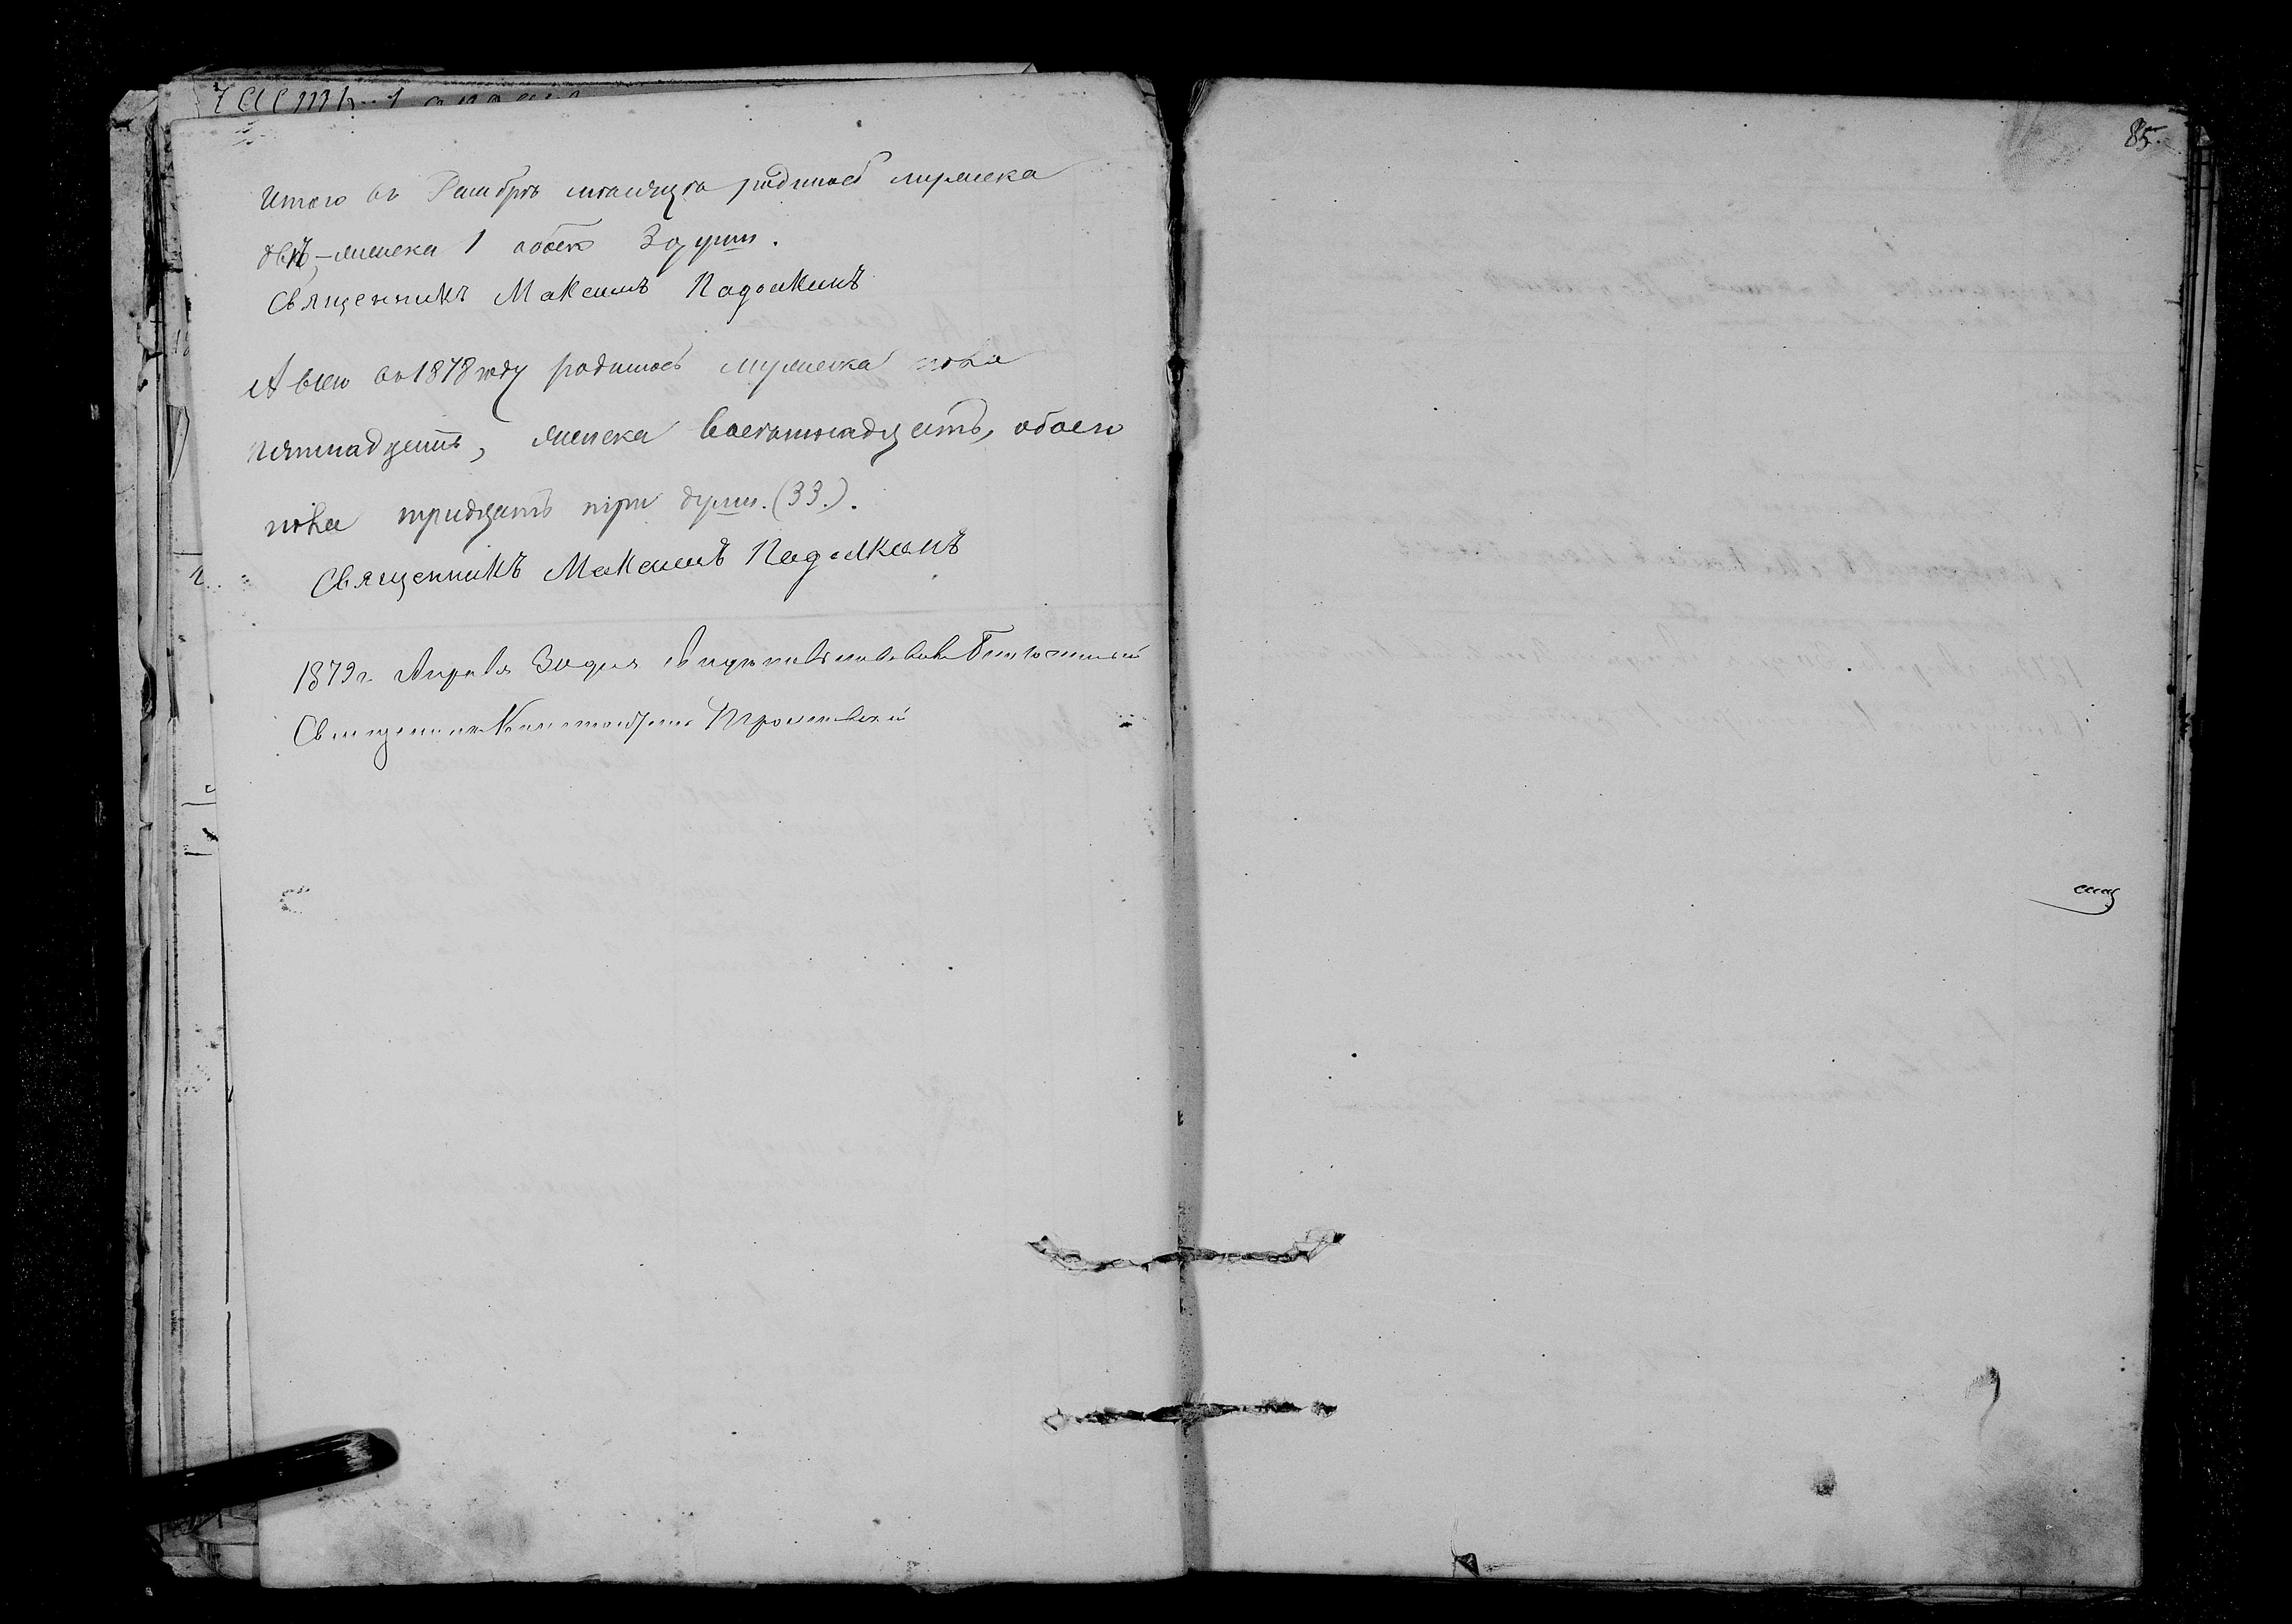 Итого въ Декабрѣ мѣсяцѣ родилось мужеска
двѣ, – женска 1 обоего 3 души.
Священникъ Максимъ Падалкинъ
А всего въ 1878 году родилось мужеска пола
пятнадцать, женска восемнадцать, обоего
пола тридцать три души. (33.).
Священникъ Максимъ Падалкинъ
1879 г. Апрѣля 30 дня
Священникъ Константинъ
85.